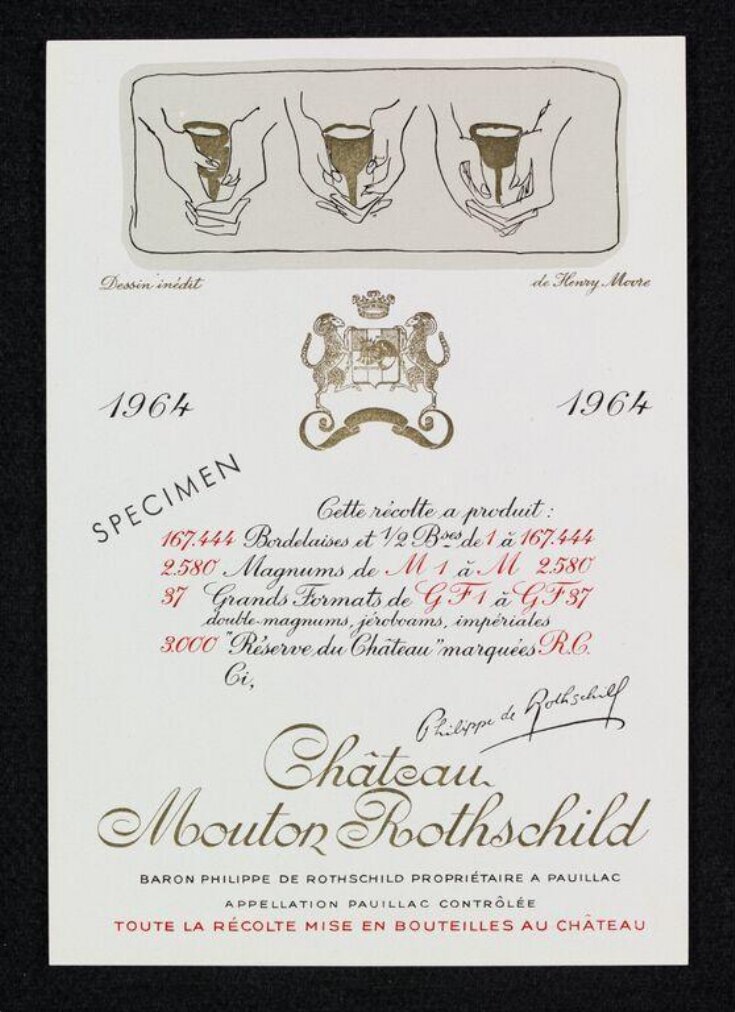 Dessin inédit de Henry Moore
1964 1964
SPECIMEN
Cette récolte a produit :
167.444 Bordelaises et 1/2 Bses de 1 à 167.444
2.580 Magnums de M 1 à M 2.580
37 Grands Formats de G F 1 à G F 37
double-magnums, jéroboams, impériales
3.000 "Réserve du Château" marquées R.C.
Ci,
Philippe de Rothschild
Château
Mouton Rothschild
BARON PHILIPPE DE ROTHSCHILD PROPRIÉTAIRE A PAUILLAC
APPELLATION PAUILLAC CONTRÔLÉE
TOUTE LA RÉCOLTE MISE EN BOUTEILLES AU CHÂTEAU